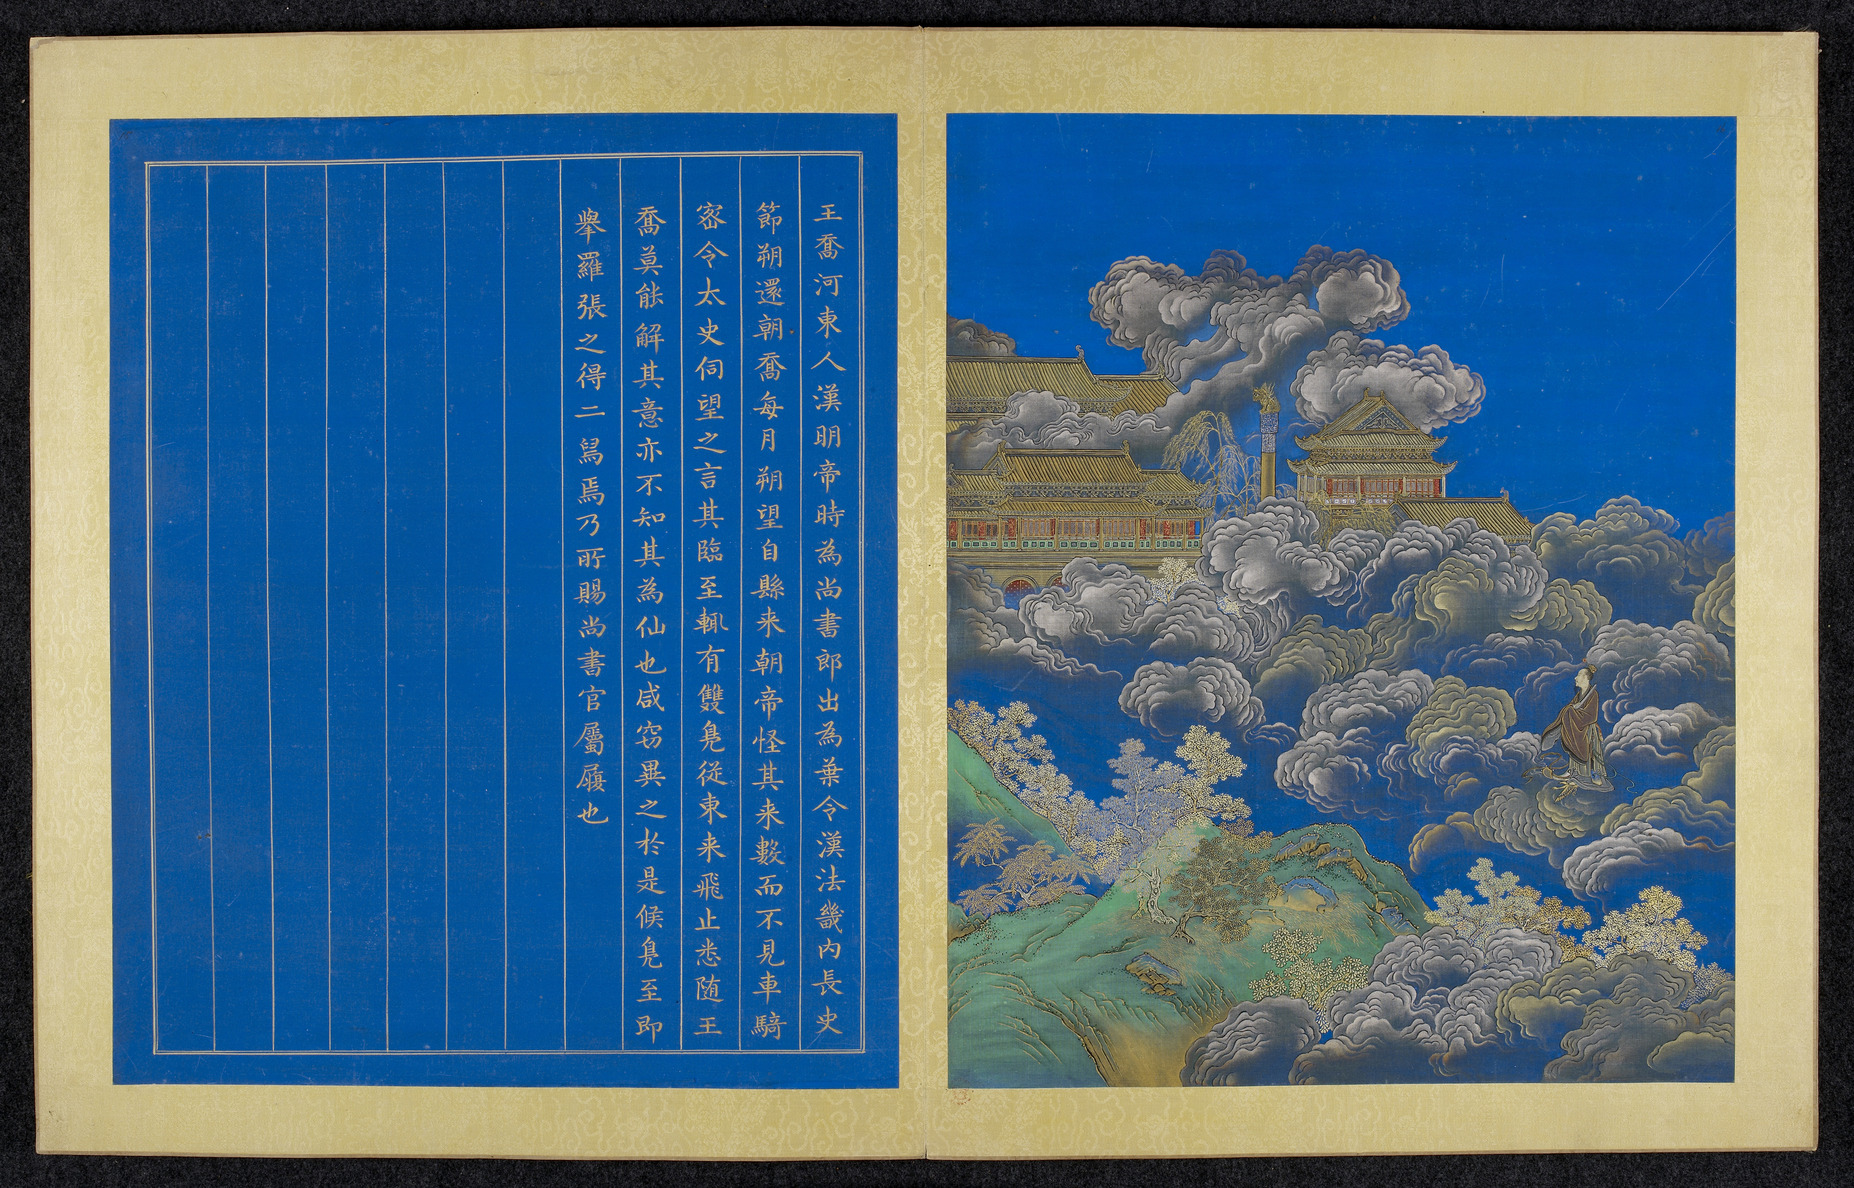 王喬河東人漢明帝時為尚書郎出為葉令漢法畿內長史
節朔還朝喬每月朔望自縣来朝帝怪其来數而不見車騎
宻令太史伺望之言其臨至輒有雙鳬從東来飛止悉随王
喬莫能解其意亦不知其為仙也咸窃異之於是候鳬至即
舉羅張之得二舄焉乃所賜尚書官屬履也